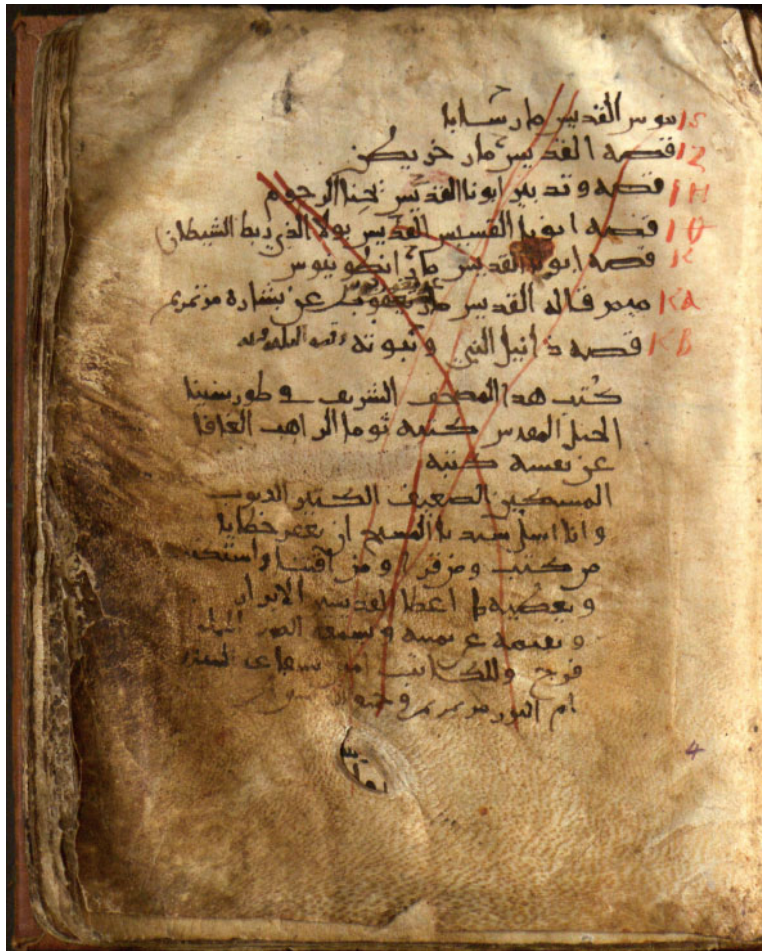 ΙS سوس القديس مار سابا
ΙΖ قصه القديس مار خريطن
ΙΗ قصه وتدبير ابونا القديس يحنا الرحوم
ΙΘ قصه ابونا القسيس القديس بولا الذي ربط الشيطان
Κ قصه ابونا القديس مار انطونيوس
ΚΑ ميمر قاله القديس مار يعقوب عن بشاره مرتمريم
ΚΒ قصه دانيل النبي ونبوته
كتب هدا المصحف الشريف في طور سينا
الجبل المقدس كتبه توما الراهب
عن نفسه كتبه
المسكين الضعيف الكتير الدنوب
وانا اسل سيدنا المسيح ان يغفر خطايا
من كتب ومن قرا ومن اقتنا
ويعطيه ما اعطا القديسين الابرار
فرج وللكاتب امين
ام النور مرتمريم
4